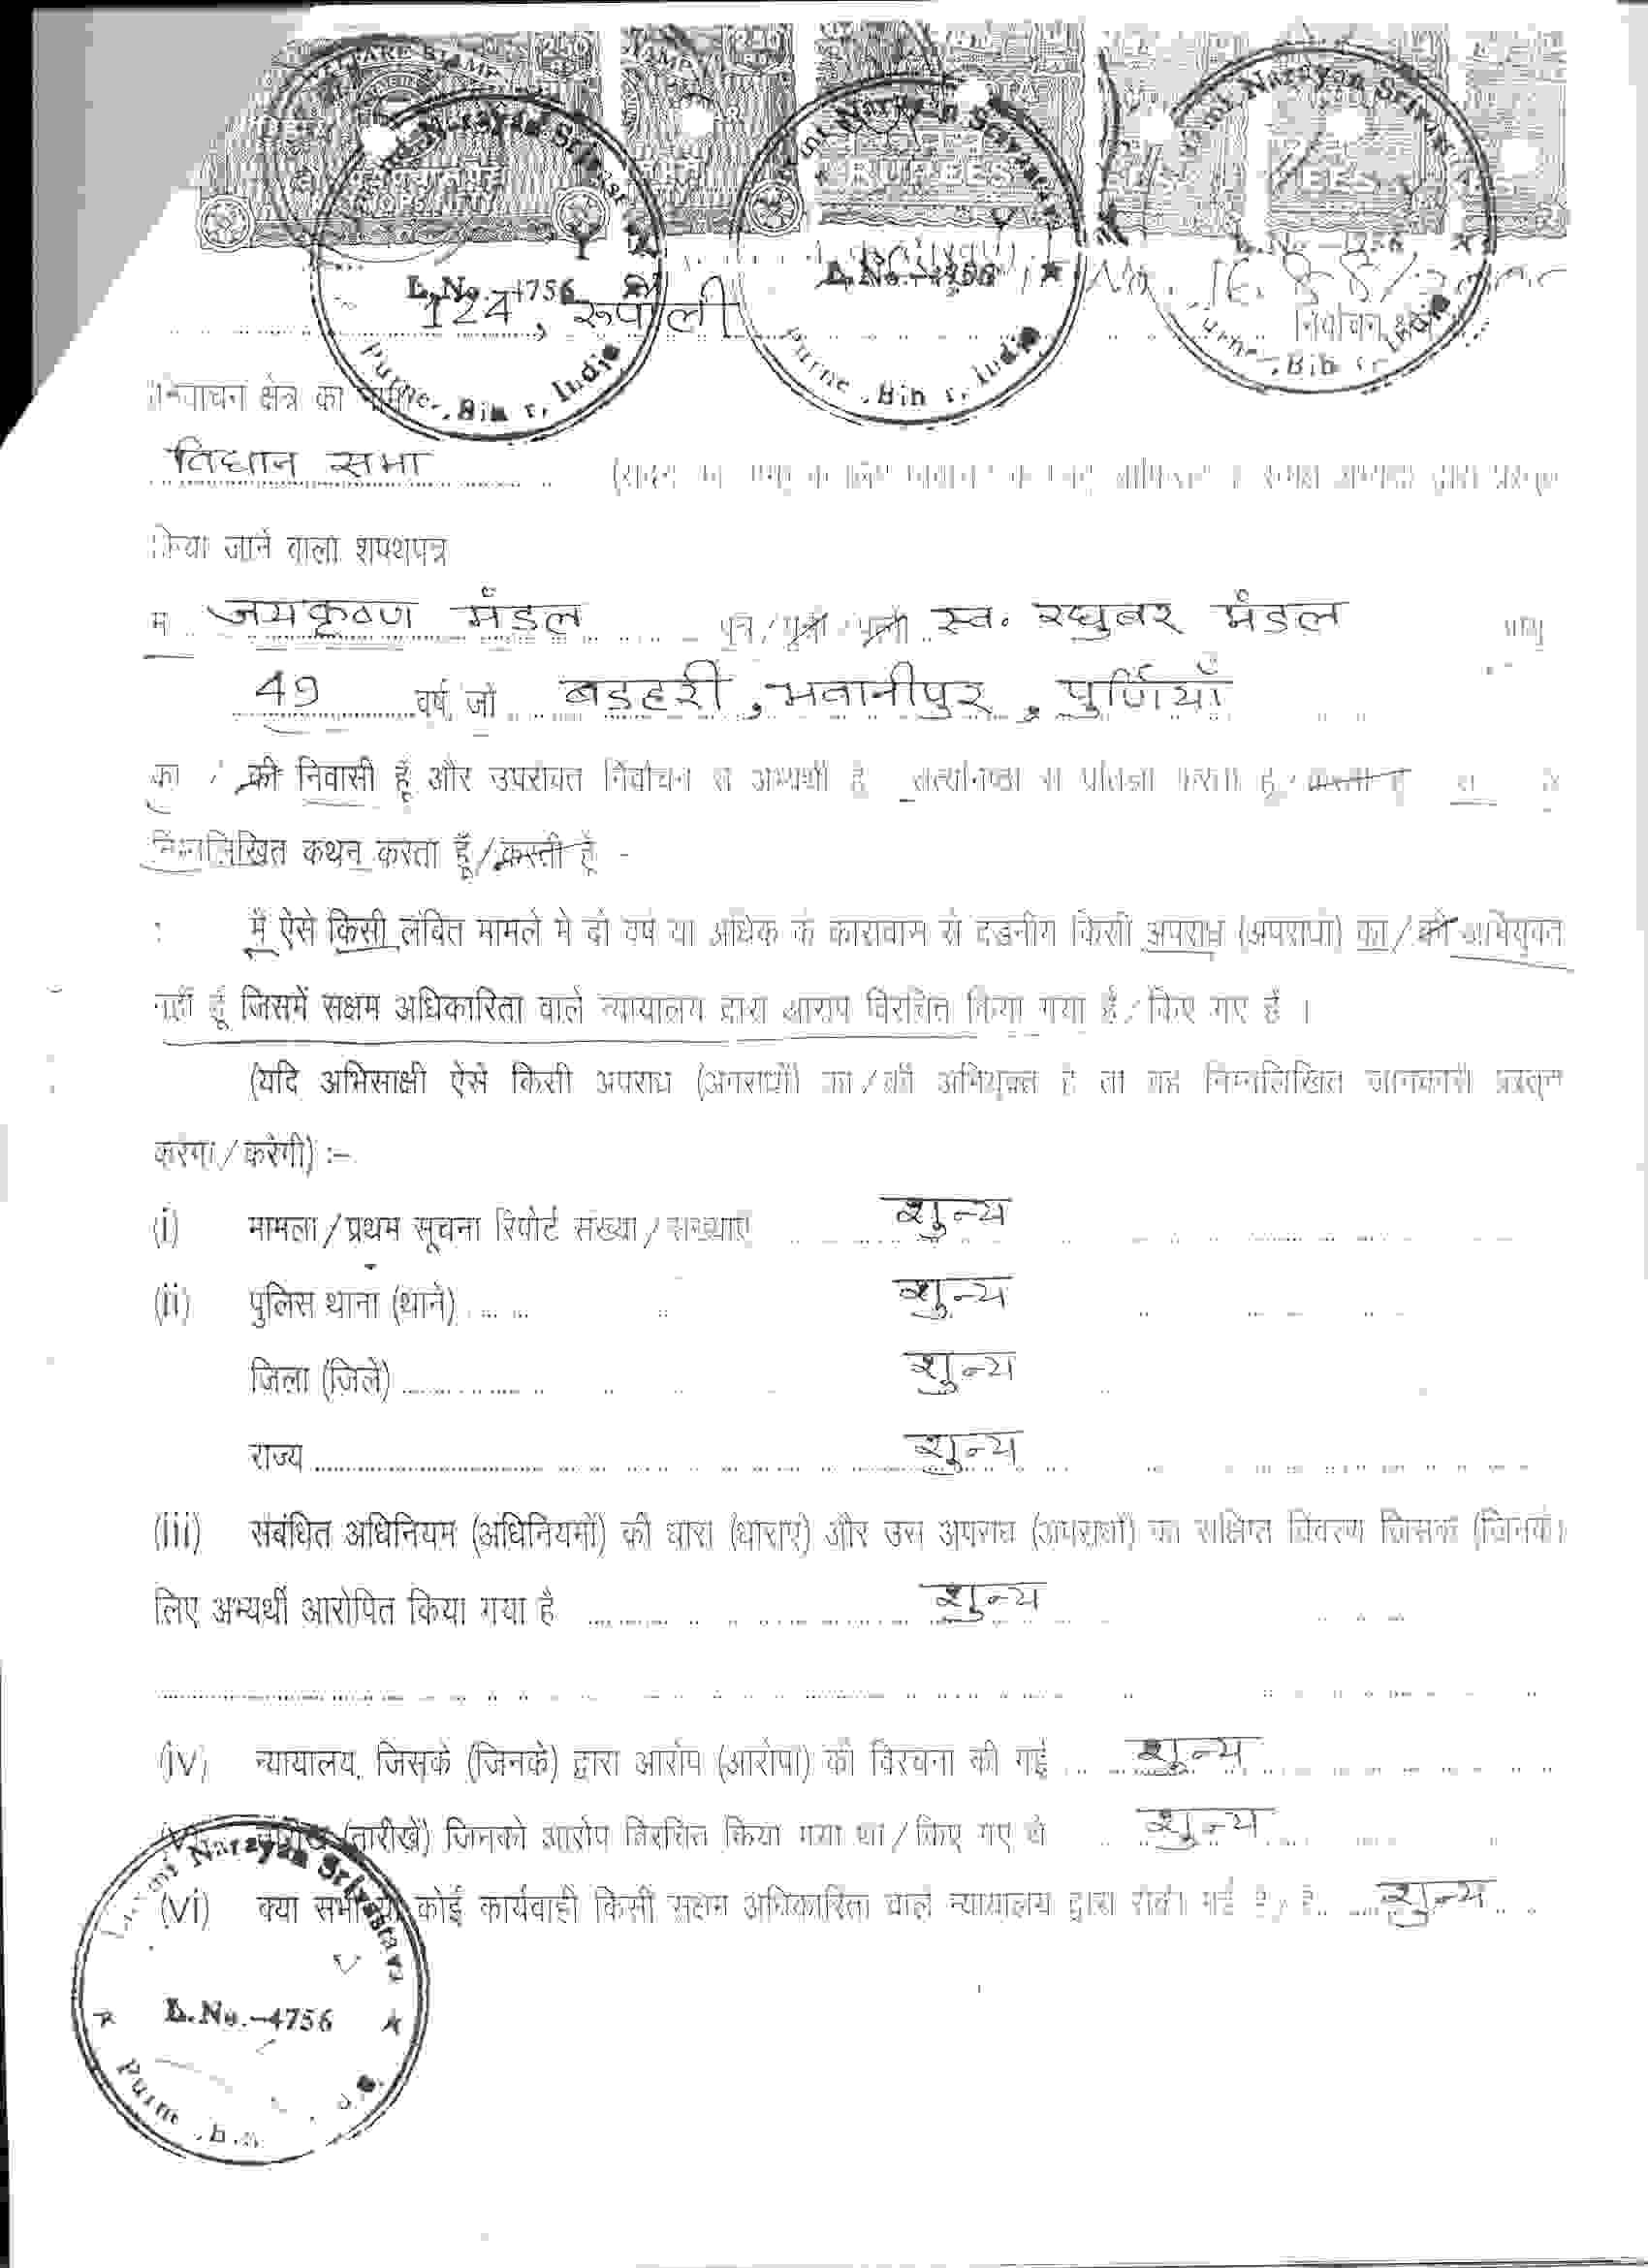 WELFARE STAMP
RUPEES
Narayan Srivastava
L.No.-4756
Purnea, Bihar, India
L.No.-4756
Purne , Bih r, India
Narayan Sriv
Bih r
124, रूपौली
निर्वाचन क्षेत्र
निर्वाचन क्षेत्र का नाम
विधान सभा
किया जाने वाला शपथपत्र
मैं जयकृष्ण मंडल पुत्र/पुत्री/पत्नी स्व. रघुबर मंडल आयु
49 वर्ष, जो बडहरी, भवानीपुर, पुर्णियाँ
का / की निवासी हूँ और उपरोक्त निर्वाचन से अभ्यर्थी हूँ सत्यनिष्ठा से प्रतिज्ञा करता हूँ/करती हूँ
निम्नलिखित कथन करता हूँ/करती हूँ -
मैं ऐसे किसी लंबित मामले में दो वर्ष या अधिक के कारावास से दंडनीय किसी अपराध (अपराधों) का/की अभियुक्त
नहीं हूँ जिसमें सक्षम अधिकारिता वाले न्यायालय द्वारा आरोप विरचित किया गया है/किए गए हैं ।
(यदि अभिसाक्षी ऐसे किसी अपराध (अपराधों) का/की अभियुक्त है तो वह निम्नलिखित जानकारी प्रस्तुत
करेगा/करेगी) :-
(i) मामला/प्रथम सूचना रिपोर्ट संख्या/संख्याएं शुन्य
(ii) पुलिस थाना (थाने) शुन्य
जिला (जिले) शुन्य
राज्य शुन्य
(iii) संबंधित अधिनियम (अधिनियमों) की धारा (धाराएं) और उस अपराध (अपराधों) का संक्षिप्त विवरण जिसके (जिनके)
लिए अभ्यर्थी आरोपित किया गया है शुन्य
(iv) न्यायालय, जिसके (जिनके) द्वारा आरोप (आरोपों) की विरचना की गई शुन्य
(v) तारीख (तारीखें) जिनको आरोप विरचित किया गया था/किए गए थे शुन्य
(vi) क्या सभी या कोई कार्यवाही किसी सक्षम अधिकारिता वाले न्यायालय द्वारा रोकी गई है/हैं शुन्य
Narayan Srivastava
L.No.-4756